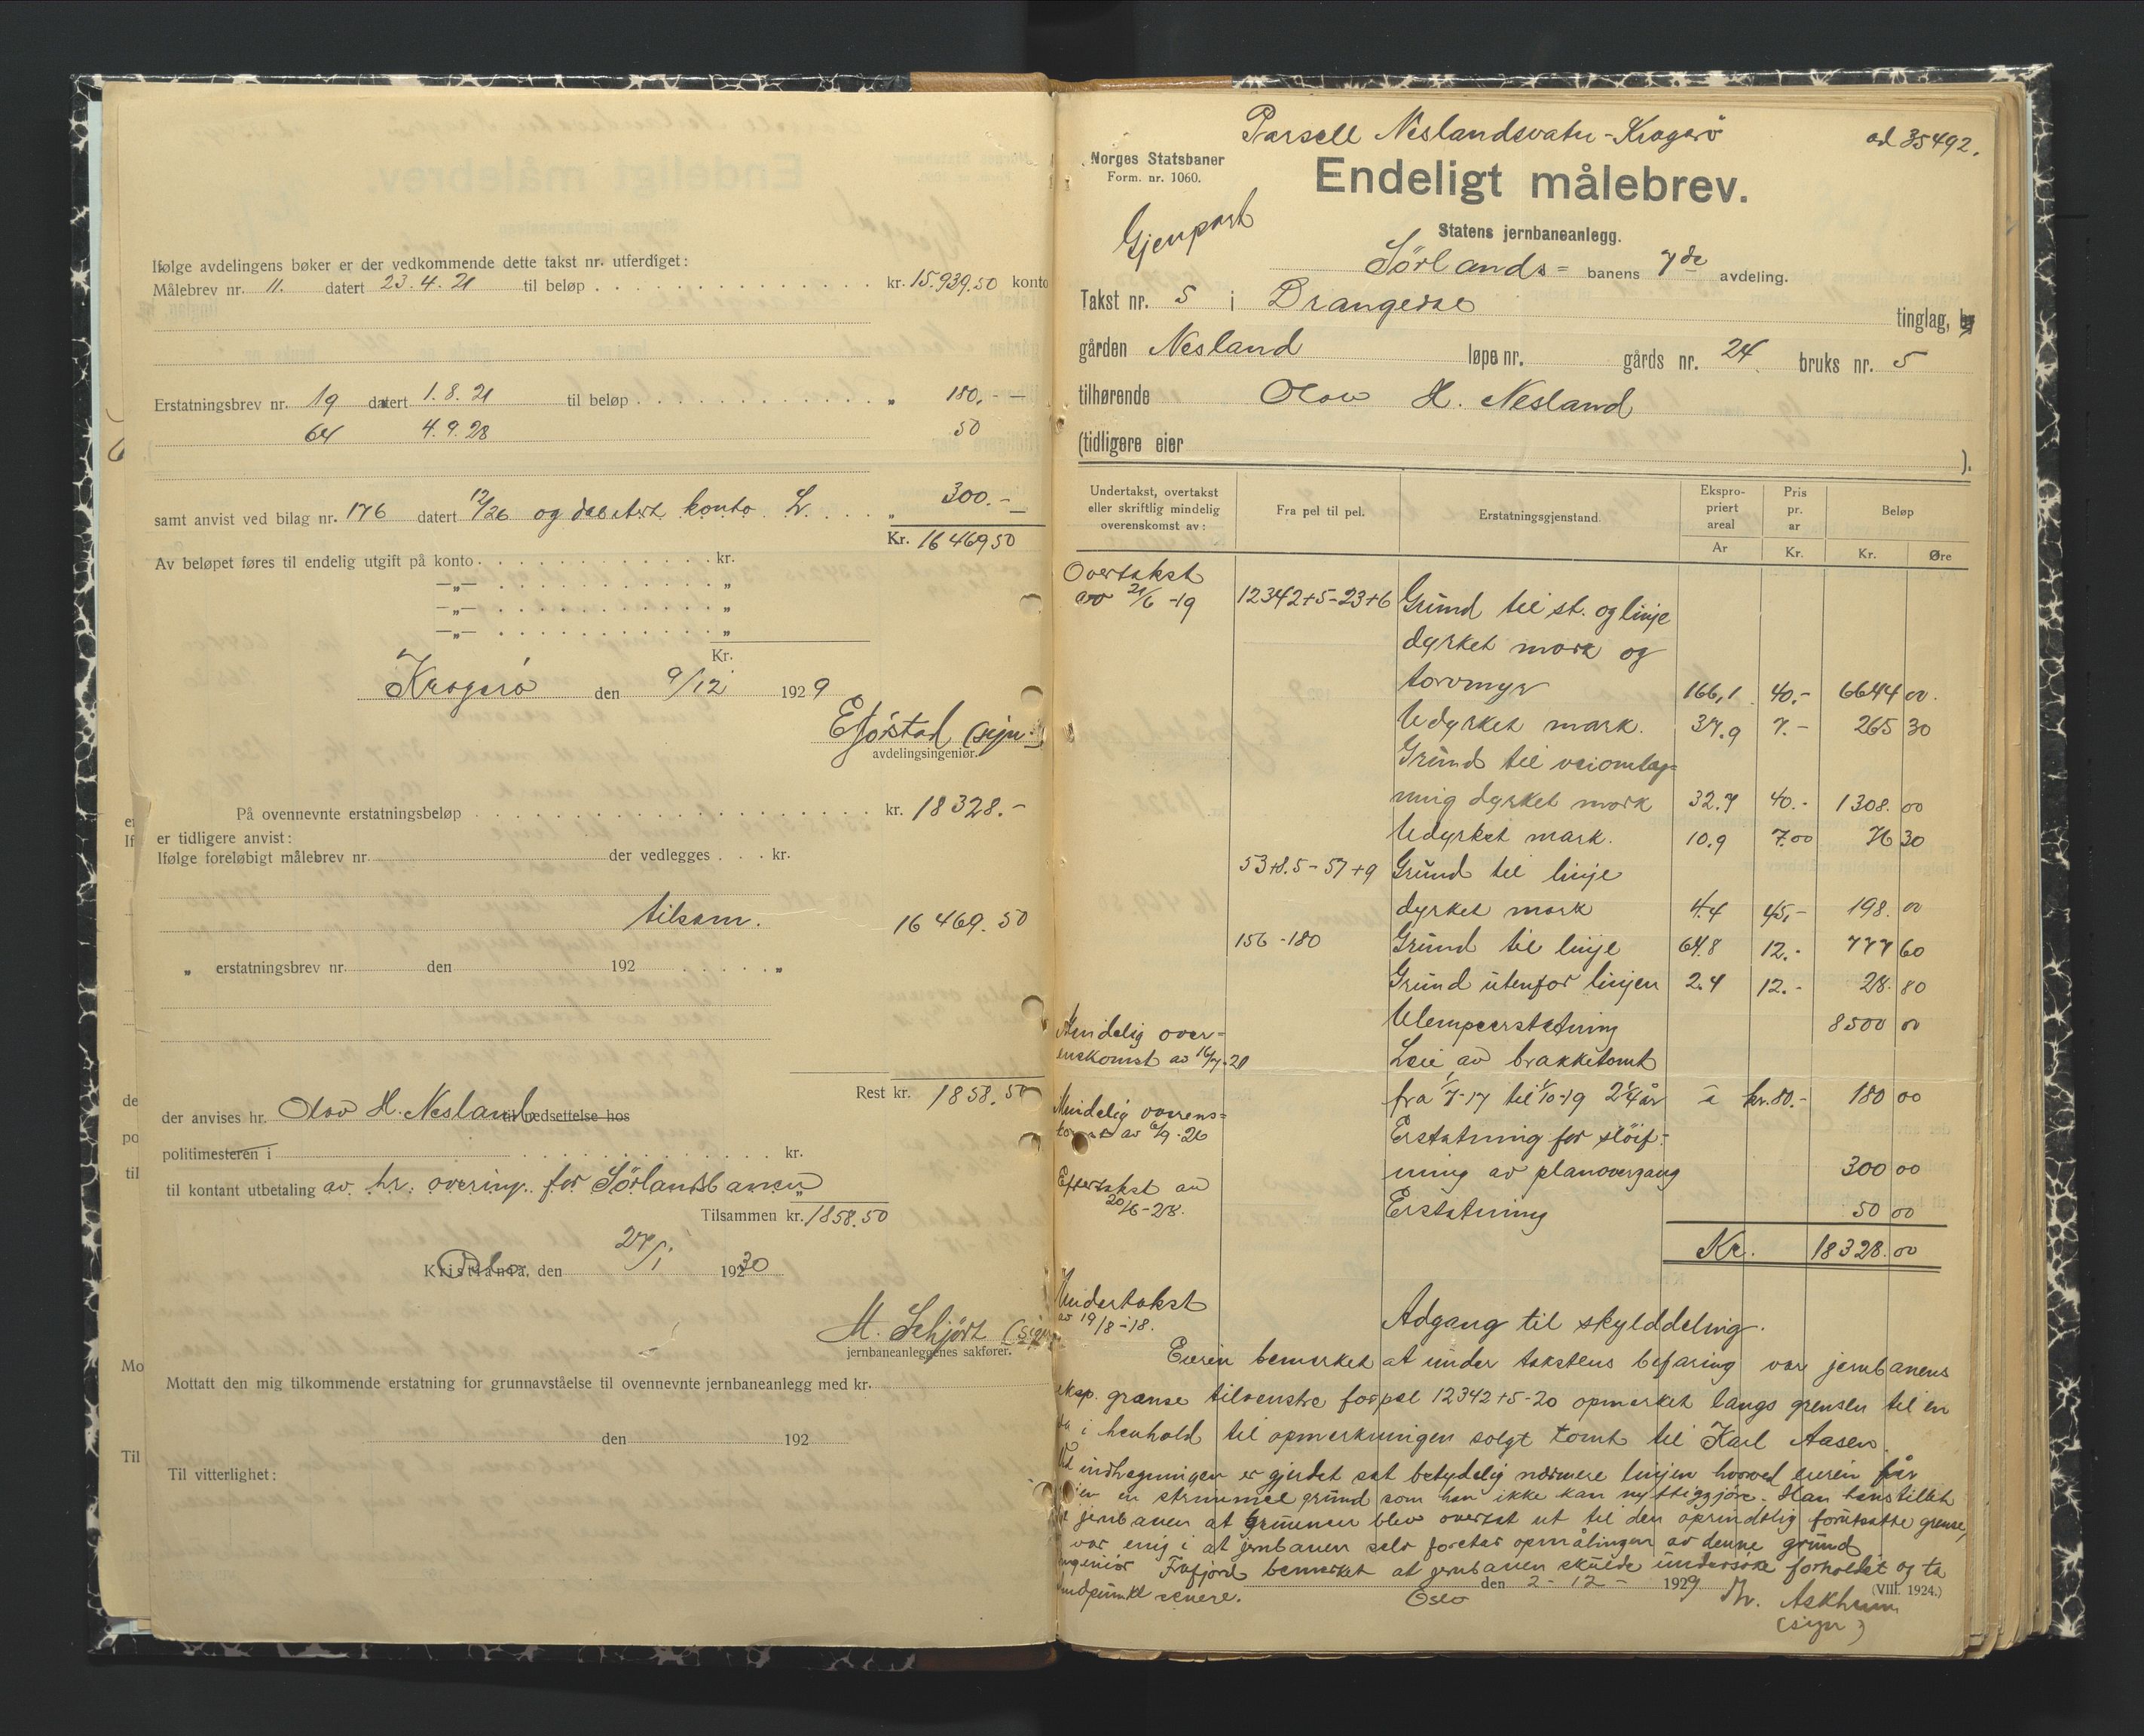 Ifølge avdelingens bøker er der vedkommende dette takst nr. utferdiget:
Målebrev nr. 11. datert 23.4.21 til beløp . . . kr. 15.939.50 konto
Erstatningsbrev nr. 19 datert 1.8.21 til beløp . . . „ 180.-
64 4.9.28 50
samt anvist ved bilag nr. 176 datert 12/26 og debitert konto L. . . „ 300.-
Kr. 16 469 50
Av beløpet føres til endelig utgift på konto . . . kr.
—„— . . . „
—„— . . . „
—„— . . . „
Kr.
Kragerø den 9/12 1929
E Jørstad (sign.)
avdelingsingeniør.
På ovennevnte erstatningsbeløp . . . kr. 18 328.-
er tidligere anvist:
Ifølge foreløbigt målebrev nr. der vedlegges . . . kr.
tilsam. 16 469.50
„ erstatningsbrev nr. den 192 . . . „
Rest kr. 1858.50
der anvises hr. Olav H. Nesland til nedsettelse hos
politimesteren i . . . kr.
til kontant utbetaling av hr. overing. for Sörlandsbanen „
Tilsammen kr. 1858.50
Kristiania, den Oslo 27/1 1930
M. Schjört (sign
jernbaneanleggenes sakfører.
Mottatt den mig tilkommende erstatning for grunnavståelse til ovennevnte jernbaneanlegg med kr.
den 192
Til vitterlighet:
Parsell Neslandsvatn - Kragerö ad 35492.
Norges Statsbaner
Form. nr. 1060.
Endeligt målebrev.
Gjenpart
Statens jernbaneanlegg.
Sörlands= banens 7de avdeling.
Takst nr. 5 i Drangedal tinglag,
gården Nesland løpe nr. gårds nr. 24 bruks nr. 5
tilhørende Olav H. Nesland
(tidligere eier ).
Undertakst, overtakst eller skriftlig mindelig overenskomst av: Fra pel til pel. Erstatningsgjenstand Ekspropriert areal Ar Pris pr. ar Kr. Beløp Kr. Øre
Overtakst
av 21/6 -19 12342+5-23+6 Grund til st. og linje
dyrket mark og
torvmyr 166,1 40.- 6644 00.
Udyrket mark. 37.9 7.- 265 30
Grund til veiomleg=
ning dyrket mark 32.7 40.- 1308. 00
Udyrket mark. 10.9 7.00 76 30
53+8.5-57+9 Grund til linje
dyrket mark 4.4 45,- 198. 00
156-180 Grund til linje 64.8 12.- 777 60
Grund utenfor linjen 2.4 12.- 28. 80
Ulempeerstatning 8500 00
Mindelig over=
enskomst av 16/7-20 Leie av brakketomt
fra 1/7-17 til 1/10-19 2¼ år á kr. 80.- 180 00
Mindelig overens=
komst av 6/9-26 Erstatning for slöif=
ning av planovergang 300 00
Eftertakst av
20/6-28. Erstatning 50 00
Kr. 18328.00
Undertakst
av 19/8-18. Adgang til skylddeling.
Eieren bemerket at under takstens befaring var jernbanens
eksp. grense tilvenstre for pel 12342+5-20 opmerket langs grensen til en
i henhold til opmerkningen solgt tomt til Karl Aasen.
Ved indhegningen er gjerdet sat betydelig nærmere linjen hvorved eieren får
igjen en strimmel grund som han ikke kan nyttiggjöre. Han henstillet
til jernbanen at grensen blev oversat ut til den oprindelig forutsatte grense,
var enig i at jernbanen selv foretar opmålingen av denne grund
Ingeniör Frafjord bemerket at jernbanen skulde undersöke forholdet og ta
standpunkt senere.
Oslo den 2 - 12 - 1929 Th. Askhum
(VIII. 1924.)
(sign)